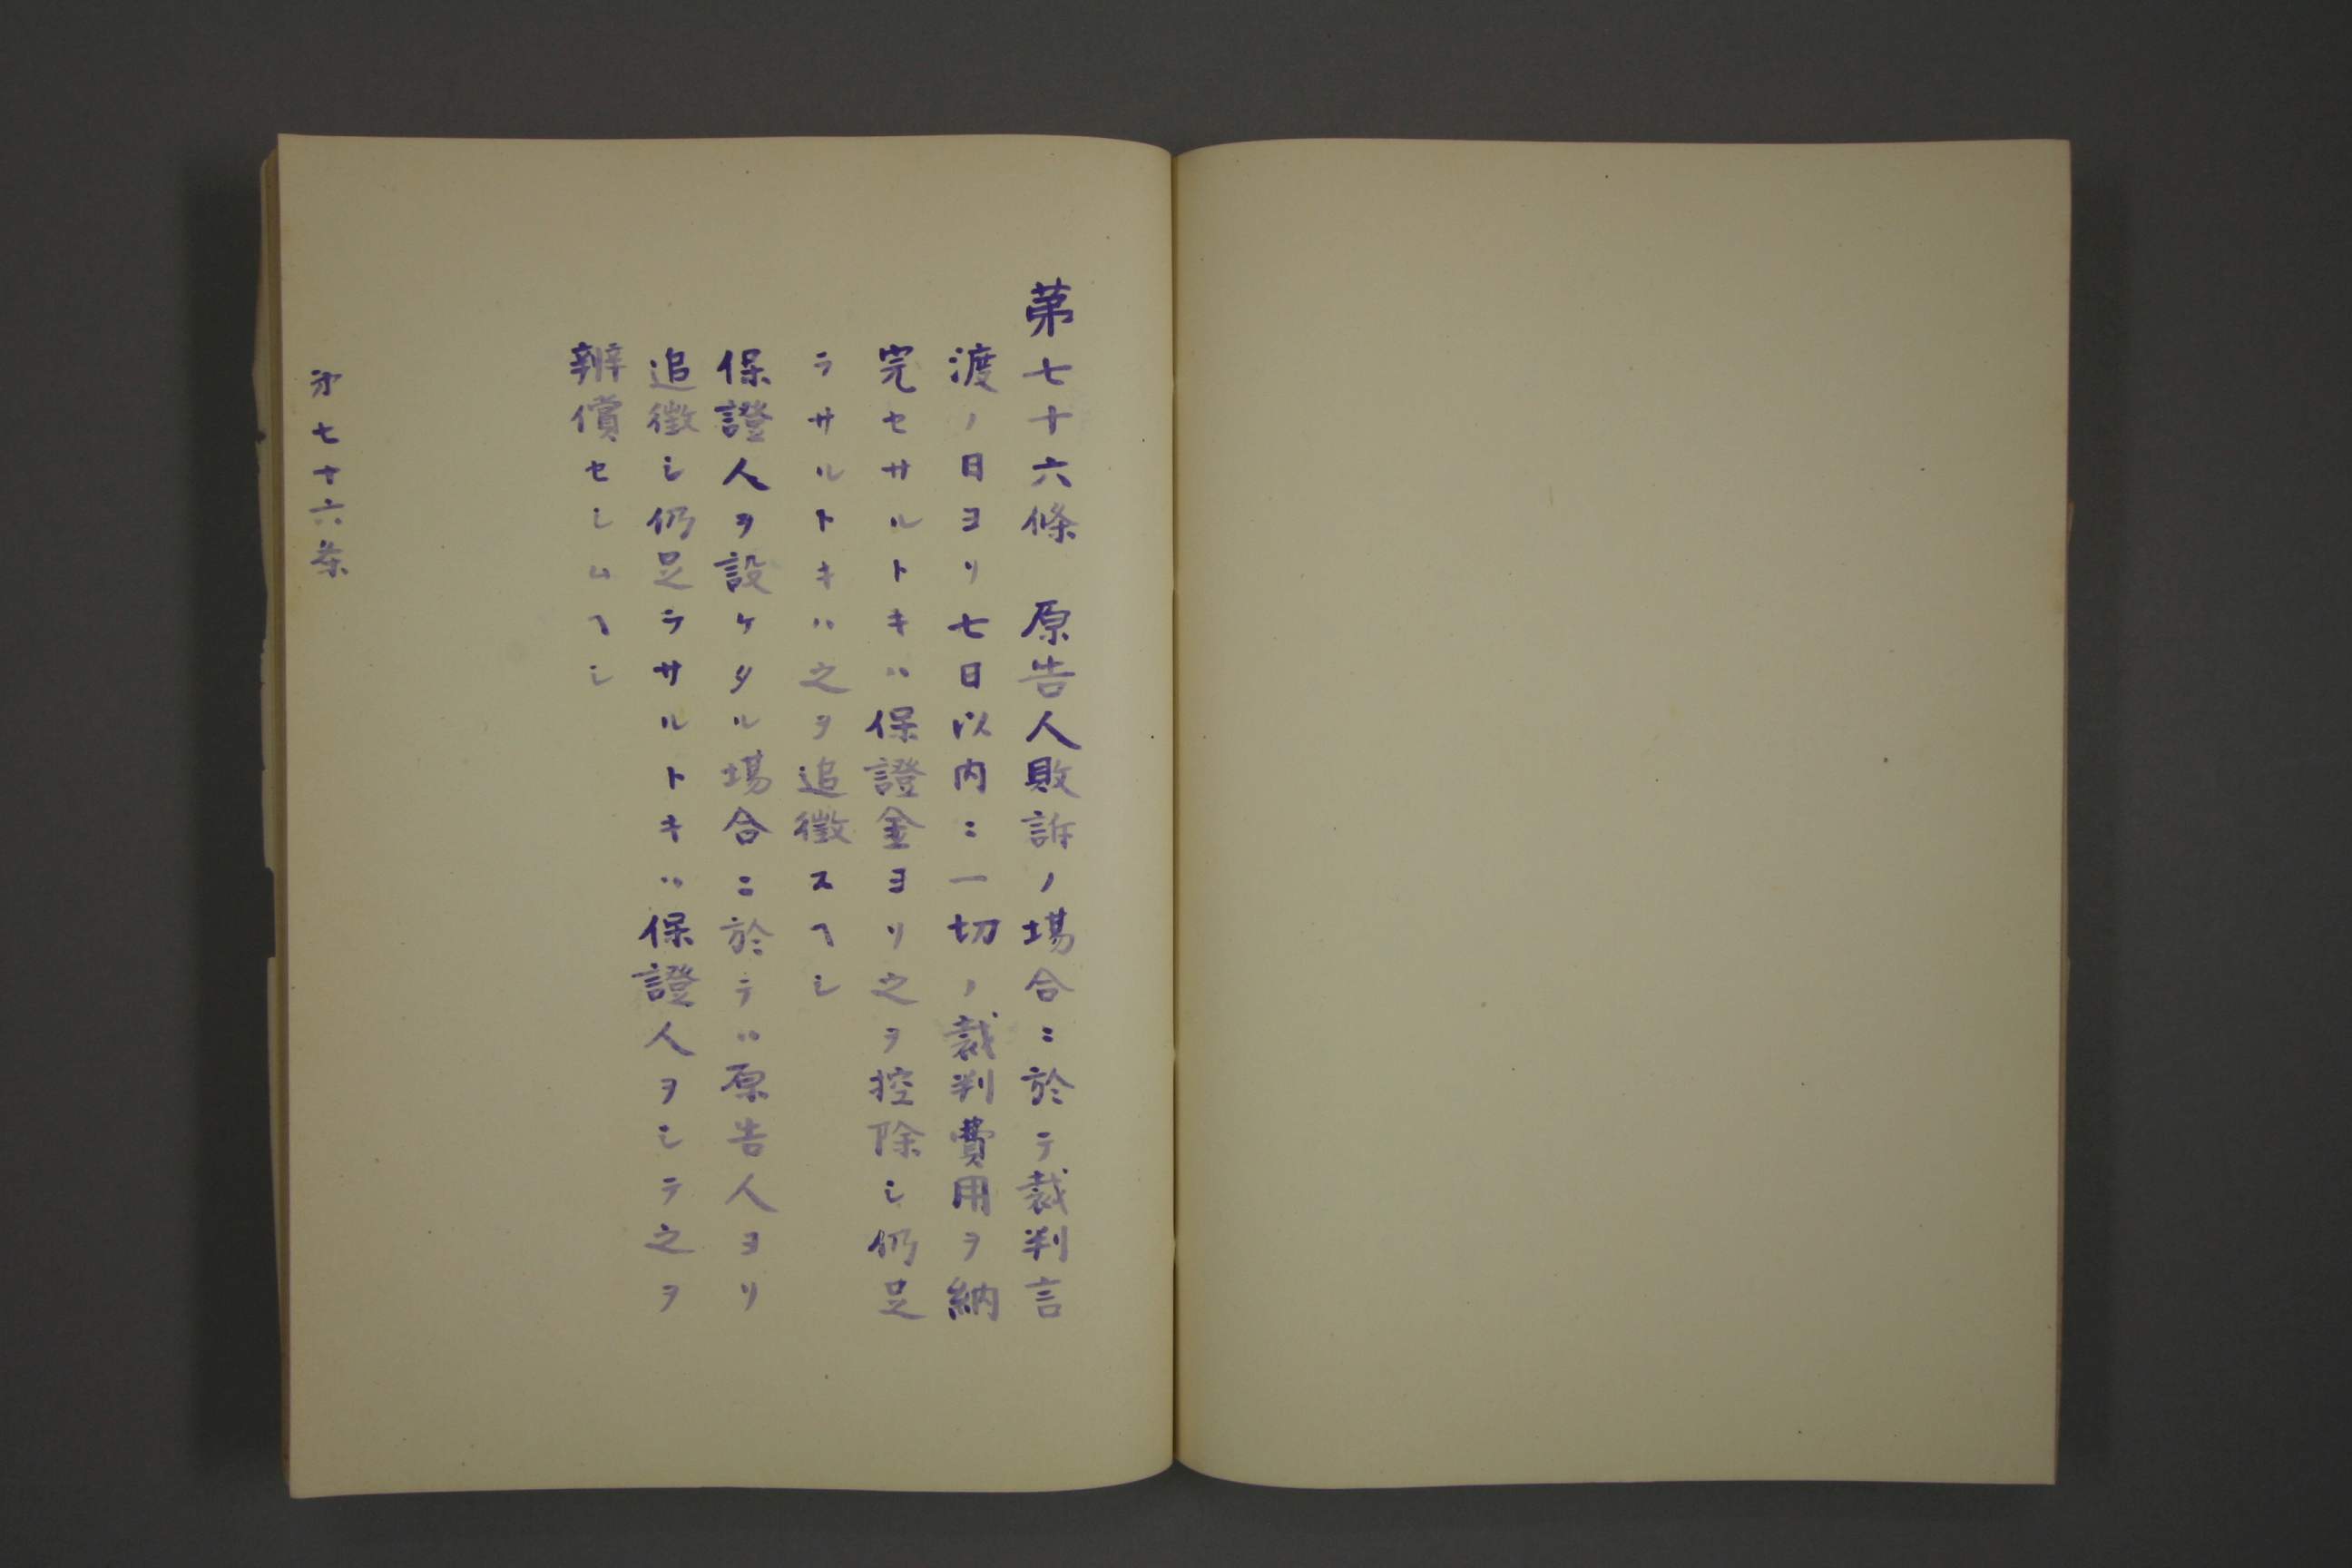 第七十六條　原告人敗訴ノ場合ニ於テ裁判言
渡ノ日ヨリ七日以内ニ一切ノ裁判費用ヲ納
完セサルトキハ保證金ヨリ之ヲ控除シ仍足
ラサルトキハ之ヲ追徴スヘシ
保證人ヲ設ケタル場合ニ於テハ原告人ヨリ
追徴シ仍足ラサルトキハ保證人ヲシテ之ヲ
辨償セシムヘシ
第七十六条